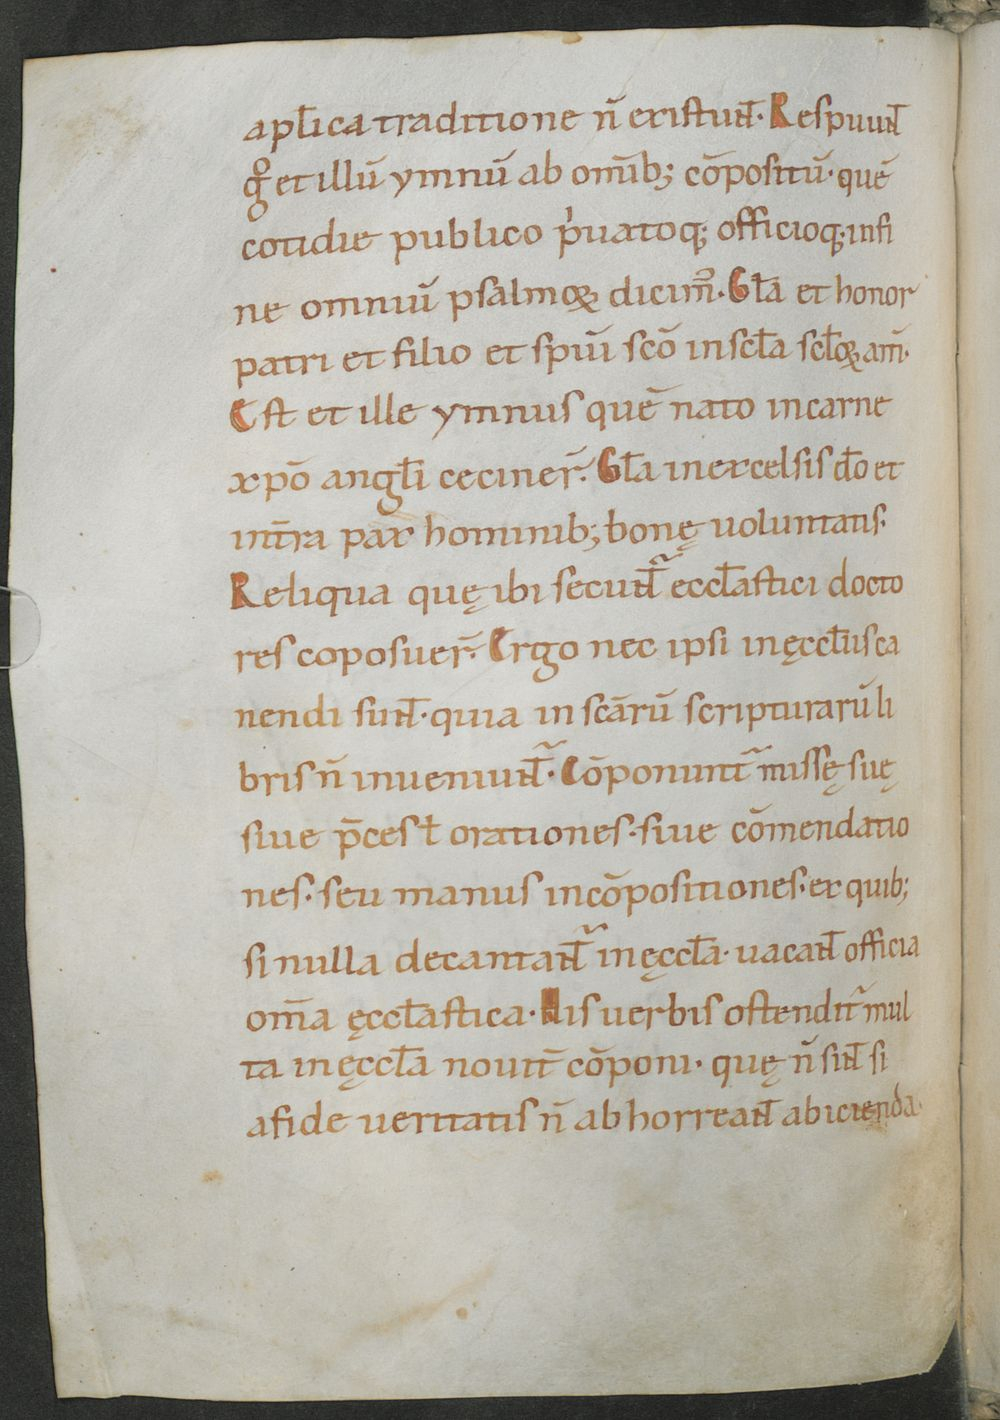 apl̄ica traditione n̄ existuƞt̄. Respuuƞt̄
gͦ et illū ymnū ab om̄ib; cōpositū. quē
cotidie publico pͥuatoq; officioq; infi
ne omniū psalmoꝝ dicim᷒. Gl̄a et honor
patri et filio et spiū scō in scl̄a scl̄oꝝ am̄.
Est et ille ymnus quē nato incarne
xpō angl̄i ceciner̄. Gl̄a inexcelsis dō et
int̄ra pax hominib; bonę uoluntatis.
Reliqua quę ibi secunt᷑ eccl̄astici docto
res coposuer̄. Ergo nec ipsi inęccl̄iis ca
nendi sunt̄. quia in scārū scripturarū li
bris n̄ inueniunt᷑. Cōponunt᷑ missę suę
siue p̄ces ł orationes. siue cōmendatio
nes. seu manus incōpositiones. ex quib;
si nulla decantant᷑ inęccl̄a. uacant̄ officia
om̄a ęccl̄astica. His uerbis ostendit᷑ mul
ta inęccl̄a nouit̄ cōponi. quę n̄ sunt̄ si
afide ueritatis n̄ abhorreant̄ abicienda.